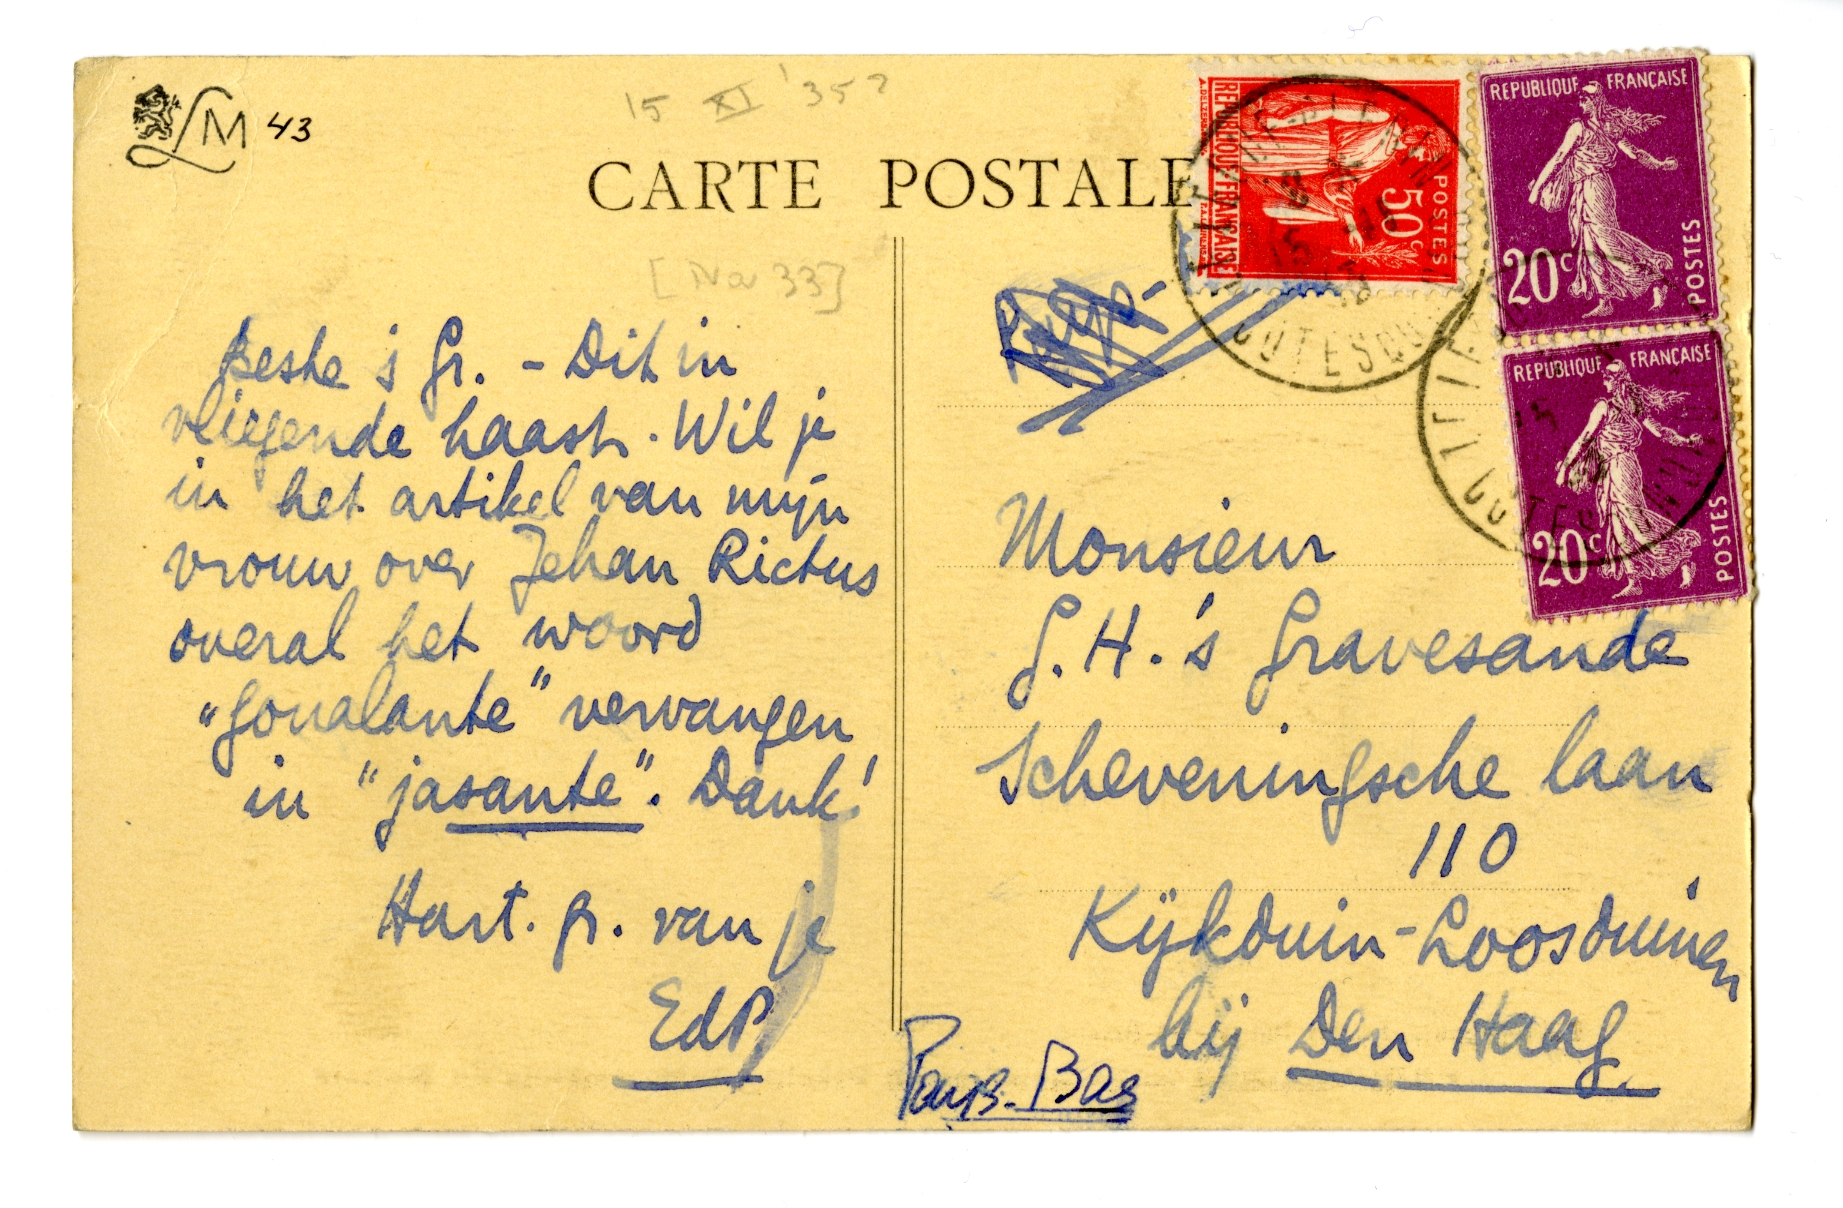 LM 43
15 XI '35?
CARTE POSTALE
[Nov 33]
Beste 's Gr. - Dit in
vliegende haast. Wil je
in het artikel van mijn
vrouw over Jehan Rictus
overal het woord
"goualante" vervangen
in "jasante". Dank!
Hart. gr. van je
EdP
REPUBLIQUE FRANÇAISE
POSTES
50c
REPUBLIQUE FRANÇAISE
20c
POSTES
REPUBLIQUE FRANÇAISE
20c
POSTES
COTES DU
Monsieur
G. H. 's Gravesande
Scheveningsche laan
110
Kijkduin-Loosduinen
bij Den Haag
Pays-Bas